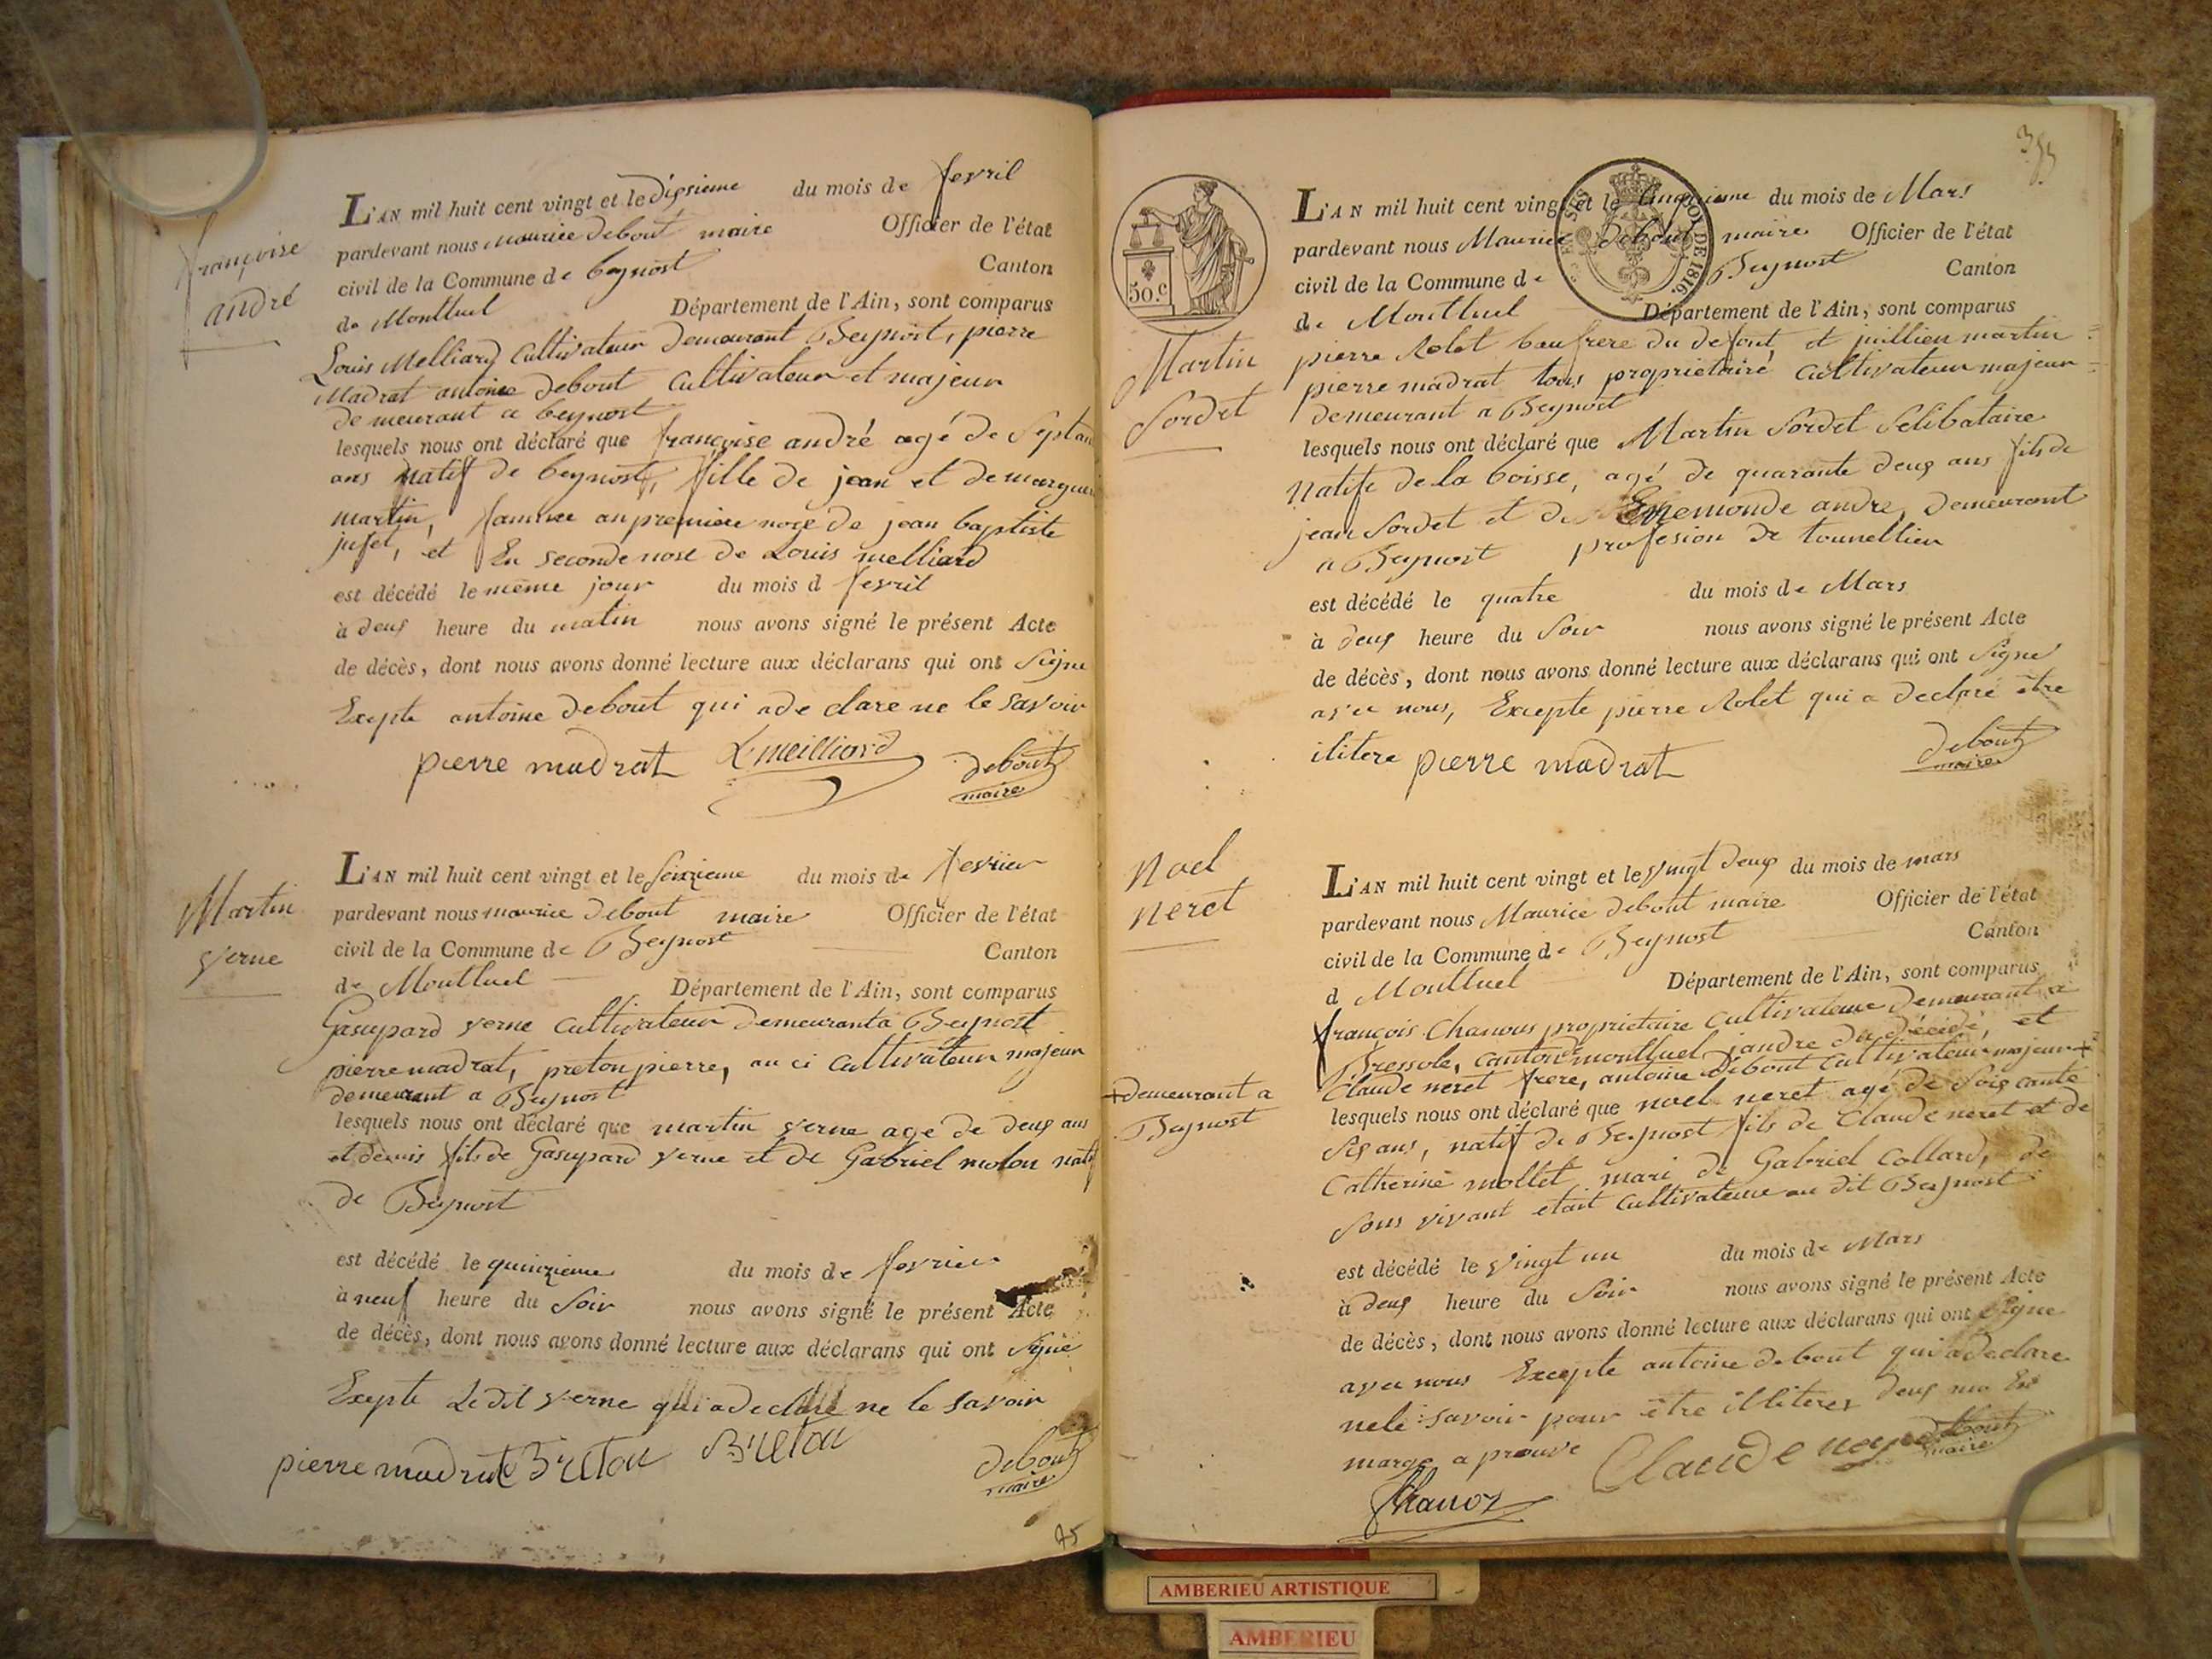 françoise
andré
L'AN mil huit cent vingt et le dixsieme du mois de fevril
pardevant nous maurice debout maire Officier de l'état
civil de la Commune de beynost Canton
de Montluel Département de l'Ain, sont comparus
Louis Melliard Cultivateur demeurant Beynost, pierre
Madrat antoine debout Cultivateur et majeur
demeurant a beynost
lesquels nous ont déclaré que françoise andré agé de Septan
ans natif de beynost, fille de jean et de marguri
martin, famme an premiere noze de jean baptiste
jufet, et En seconde nose de Louis melliard
est décédé le même jour du mois d fevril
à deux heure du matin nous avons signé le présent Acte
de décès, dont nous avons donné lecture aux déclarans qui ont Signe
Exepte antoine debout qui a de clare ne le savoir
pierre madrat L meilliard debout
maire
Martin
verne
L'AN mil huit cent vingt et le Seizieme du mois de fevrier
pardevant nous maurice debout maire Officier de l'état
civil de la Commune de Beynost Canton
de Montluel Département de l'Ain, sont comparus
Gaspard verne cultivateur demeurant a Beynost
pierre madrat, preton pierre, au ci cultivateur majeur
demeurant a Beynost
lesquels nous ont déclaré que martin verne age de deux ans
et demis fils de Gaspard verne et de Gabriel molon natif
de Beynost
est décédé le quinzieme du mois de fevrier
à neuf heure du Soir nous avons signé le présent Acte
de décès, dont nous avons donné lecture aux déclarans qui ont signé
Exepte Ledit verne qui a declare ne le savoir
pierre madrat debout
maire
75
50.c
DE 1816.
Martin
Sordet
L'AN mil huit cent vingt et le cinquieme du mois de Mars
pardevant nous Maurice debout maire Officier de l'état
civil de la Commune de Beynost Canton
de Montluel Département de l'Ain, sont comparus
pierre Rolet baufrere du defont et juillien martin
pierre madrat tous proprietairé cultivateur majeur
demeurant a Beynost
lesquels nous ont déclaré que Martin Sordet Selibataire
Natife de la boisse, agé de quarante deux ans fils de
jean Sordet et de Ennemonde andre, demeurant
a Beynost profesion de tounellier
est décédé le quatre du mois de Mars
à deux heure du Soir nous avons signé le présent Acte
de décès, dont nous avons donné lecture aux déclarans qui ont Signé
avec nous, Excepte pierre Rolet qui a declaré être
ilitere pierre madrat debout
maire
Noel
neret
L'AN mil huit cent vingt et le vingt deux du mois de mars
pardevant nous Maurice debout maire Officier de l'état
civil de la Commune de Beynost Canton
d Montluel Département de l'Ain, sont comparus
françois Chanous proprietaire Cultivateur demeurant a
Bressole, canton de montluel, jandre du décidé, et
Claude neret frere, antoine debout cultivateur majeur +
+ demeurant a
Beynost
lesquels nous ont déclaré que noel neret agé de Soixcante
Six ans, natif de Beynost fils de Claude neret et de
Catherine mollet mari de Gabriel Collard, de
Sous vivant etait Cultivateur au dit Beynost
est décédé le vingt un du mois de Mars
à deux heure du Soir nous avons signé le présent Acte
de décès, dont nous avons donné lecture aux déclarans qui ont Signe
avec nous Excepte antoine debout qui a declare
nele savoir pour être illiterex deux mo En
marge a prouve Claude neyret debout
maire
Chanoz
AMBERIEU ARTISTIQUE
AMBERIEU